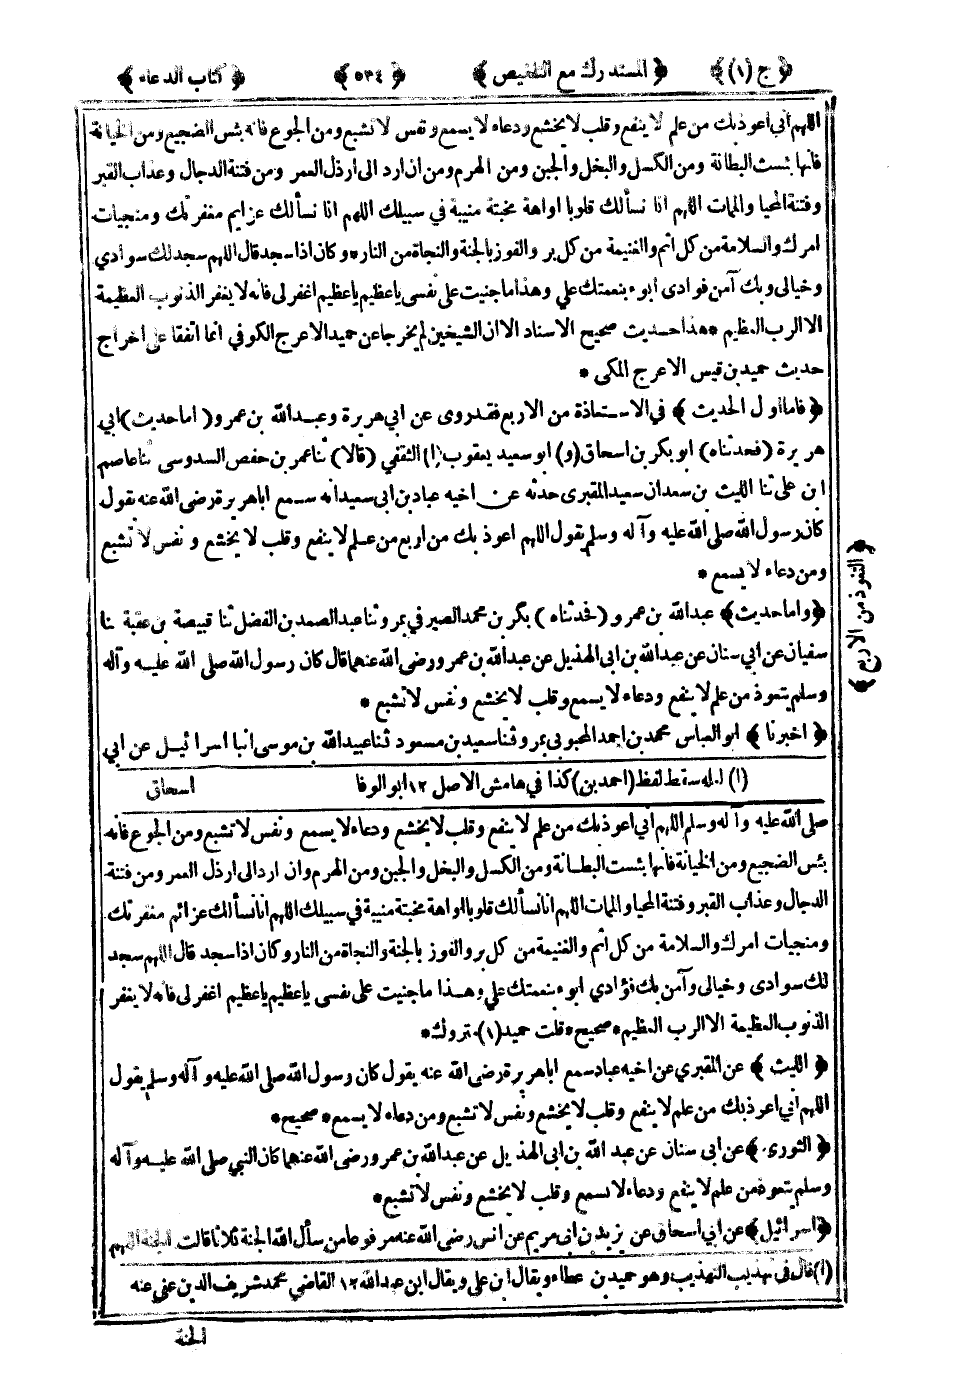 ﴿ ج (١) ﴾ ﴿ المستدرك مع التلخيص ﴾ ﴿ ٥٣٤ ﴾ ﴿ كتاب الدعاء ﴾
اللهم أني اعوذبك من علم لا ينفع وقلب لا يخشع ودعاء لا يسمع ونفس لا تشبع ومن الجوع فانه بئس الضجيع ومن الخيانة
فانها بئست البطانة ومن الكسل والبخل والجبن ومن الهرم ومن ان ارد الى ارذل العمر ومن فتنة الدجال وعذاب القبر
وفتنة المحيا والممات اللهم انا نسألك قلوبا اواهة مخبتة منيبة في سبيلك اللهم انا نسألك عزايم مغفرتك ومنجيات
امرك والسلامة من كل اثم والغنيمة من كل بر والفوز بالجنة والنجاة من النار * وكان اذا سجد قال اللهم سجد لك سوادي
وخيالي وبك آمن فوادى ابوء بنعمتك علي وهذا ما جنيت على نفسى يا عظيم يا عظيم اغفر لى فانه لا يغفر الذنوب العظيمة
الا الرب العظيم * هذا حديث صحيح الاسناد الا ان الشيخين لم يخرجا عن حميد الاعرج الكوفي انما اتفقا على اخراج
حديث حميد بن قيس الاعرج المكى *
﴿ فاما اول الحديث ﴾ في الاستعاذة من الاربع فقد روى عن ابي هريرة وعبد الله بن عمرو ( اما حديث ) ابي
هريرة ( فحدثناه ) ابو بكر بن اسحاق (و) ابو سعيد يعقوب (١) الثقفي (قالا) ثنا عمر بن حفص السدوسى ثنا عاصم
ابن على ثنا الليث بن سعد ان سعيد المقبرى حدثه عن اخيه عباد بن ابي سعيد انه سمع اباهريرة رضى الله عنه يقول
كان رسول الله صلى الله عليه وآله وسلم يقول اللهم اعوذ بك من اربع من علم لا ينفع وقلب لا يخشع ونفس لا تشبع
ومن دعاء لا يسمع *
﴿ واما حديث ﴾ عبدالله بن عمرو ( فحدثناه ) بكر بن محمد الصير في بمرو ثنا عبد الصمد بن الفضل ثنا قبيصة بن عقبة ثنا
سفيان عن ابي سنان عن عبدالله بن ابي الهذيل عن عبدالله بن عمرو رضى الله عنهما قال كان رسول الله صلى الله عليه وآله
وسلم يتعوذ من علم لا ينفع ودعاء لا يسمع وقلب لا يخشع ونفس لا تشبع *
﴿ اخبرنا ﴾ ابو العباس محمد بن احمد المحبوبي بمرو ثنا سعيد بن مسعود ثنا عبيدالله بن موسى انبا اسرائيل عن ابي
(١) لعله سقط لفظ (احمد بن) كذا في هامش الاصل ١٢ ابو الوفا
اسحاق
﴿ التعوذ من الاربع ﴾
صلى الله عليه وآله وسلم اللهم أني اعوذبك من علم لا ينفع وقلب لا يخشع ودعاء لا يسمع ونفس لا تشبع ومن الجوع فانه
بئس الضجيع ومن الخيانة فانها بئست البطانة ومن الكسل والبخل والجبن ومن الهرم وان ارد الى ارذل العمر ومن فتنة
الدجال وعذاب القبر وفتنة المحيا والممات اللهم انا نسألك قلوبا اواهة مخبتة منيبة في سبيلك اللهم انا نسألك عزائم مغفرتك
ومنجيات امرك والسلامة من كل اثم والغنيمة من كل بر والفوز بالجنة والنجاة من النار وكان اذا سجد قال اللهم سجد
لك سوادى وخيالى وآمن بك فؤادي ابوء بنعمتك علي وهذا ما جنيت على نفسى يا عظيم يا عظيم اغفر لى فانه لا يغفر
الذنوب العظيمة الا الرب العظيم * صحيح * قلت حميد (١) متروك *
﴿ الليث ﴾ عن المقبري عن اخيه عباد سمع اباهريرة رضى الله عنه يقول كان رسول الله صلى الله عليه وآله وسلم يقول
اللهم اني اعوذبك من علم لا ينفع وقلب لا يخشع ونفس لا تشبع ومن دعاء لا يسمع * صحيح *
﴿ الثورى ﴾ عن ابى سنان عن عبد الله بن ابى الهذيل عن عبدالله بن عمرو رضى الله عنهما كان النبي صلى الله عليه وآله
وسلم يتعوذ من علم لا ينفع ودعاء لا يسمع وقلب لا يخشع ونفس لا تشبع *
﴿ اسرائيل ﴾ عن ابي اسحاق عن بريد بن ابى مريم عن انس رضى الله عنه مرفوعا من سأل الله الجنة ثلاثا قالت الجنة اللهم
(١) قال في تهذيب التهذيب وهو حميد بن عطاء ويقال ابن علي ويقال ابن عبدالله ١٢ القاضي محمد شريف الدين عفى عنه
الجنة